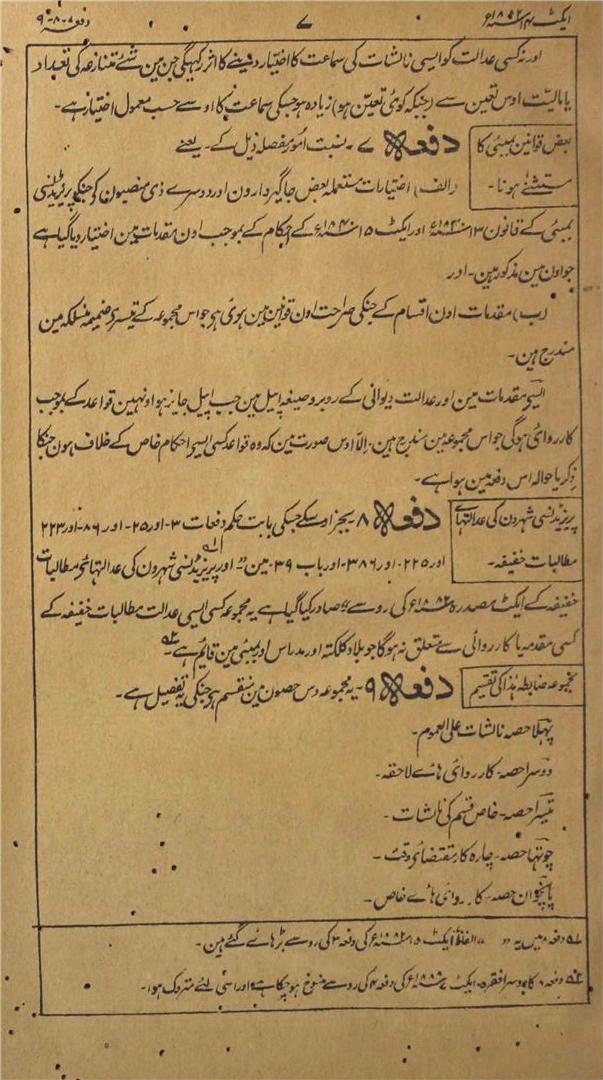 ایکٹ ۱۴ سنہ ۱۸۸۲ع
۷
دفعہ ۷-۸-۹
اور نہ کسی عدالت کو ایسی نالشات کی سماعت کا اختیار دینے کا اثر رکھیگی جن مین شے متنازعہ کی تعداد
یا مالیت اوس تعین سے (جبکہ کوئی تعین ہو) زیادہ ہو جسکی سماعت کا اوسے حسب معمول اختیار ہے۔
بعض قوانین بمبئی کا
مستثنے ہونا۔
دفعہ ۷۔ بہ نسبت امور مفصلہ ذیل کے۔ یعنے
(الف) اختیارات مستعملہ بعض جاگیردارون اور دوسرے ذی منصبون کو جنکو پریزیڈنسی
بمبئی کے قانون ۱۳ سنہ ۱۸۳۰ع اور ایکٹ ۱۵ سنہ ۱۸۴۰ع کے احکام کے بموجب اون مقدمات مین اختیار دیا گیا ہے
جو اون مین مذکور ہین۔ اور
(ب) مقدمات اون اقسام کے جنکی صراحت اون قوانین مین ہوئی ہو جو اس مجموعہ کے تیسرے ضمیمہ منسلکہ مین
مندرج ہین۔
ایسے مقدمات مین اور عدالت دیوانی کے روبرو صیغہ اپیل مین جب اپیل جایز ہو اونہین قواعد کے بموجب
کارروائی ہوگی جو اس مجموعہ مین مندرج ہین۔ الا اوس صورت مین کہ وہ قواعد کسی ایسے احکام خاص کے خلاف ہون جنکا
ذکر یا حوالہ اس دفعہ مین ہوا ہے۔
پریزیڈنسی شہرون کی عدالتہاے
مطالبات خفیفہ۔
دفعہ ۸۔ بجز اوسکے جسکی بابت حکم دفعات ۳-اور ۲۵-اور ۸۶-اور ۲۲۳
اور ۲۲۵-اور ۳۸۶-اور باب ۳۹-مین ”اور پریزیڈنسی شہرون کی عدالتہاے مطالبات
خفیفہ کے ایکٹ مصدرہ سنہ ۱۸۸۲ع کی رو سے“ صادر کیا گیا ہے یہ مجموعہ کسی ایسی عدالت مطالبات خفیفہ کے
کسی مقدمہ یا کارروائی سے متعلق نہ ہوگا جو بلاد کلکتہ اور مدراس اور بمبئی مین قائم ہے۔
مجموعہ ضابطہ ہذا کی تقسیم
دفعہ ۹۔ یہ مجموعہ دس حصون مین منقسم ہے جنکی یہ تفصیل ہے۔
پہلا حصہ نالشات علی العموم۔
دوسرا حصہ۔ کارروائی ہاے لاحقہ۔
تیسرا حصہ۔ خاص قسم کی نالشات۔
چوتھا حصہ۔ چارہ کار مقتضاے وقت۔
پانچوان حصہ۔ کارروائی ہاے خاص۔
۱؎ دفعہ ۸ مین یہ ” “ الفاظ ایکٹ ۱۵ سنہ ۱۸۸۲ع کی دفعہ ۳ کی رو سے بڑھائے گئے ہین۔
۲؎ دفعہ ۸ کا دوسرا فقرہ ایکٹ ۷ سنہ ۱۸۸۸ع کی دفعہ ۴ کی رو سے منسوخ ہو چکا ہے اور اسی لئے متروک ہوا۔